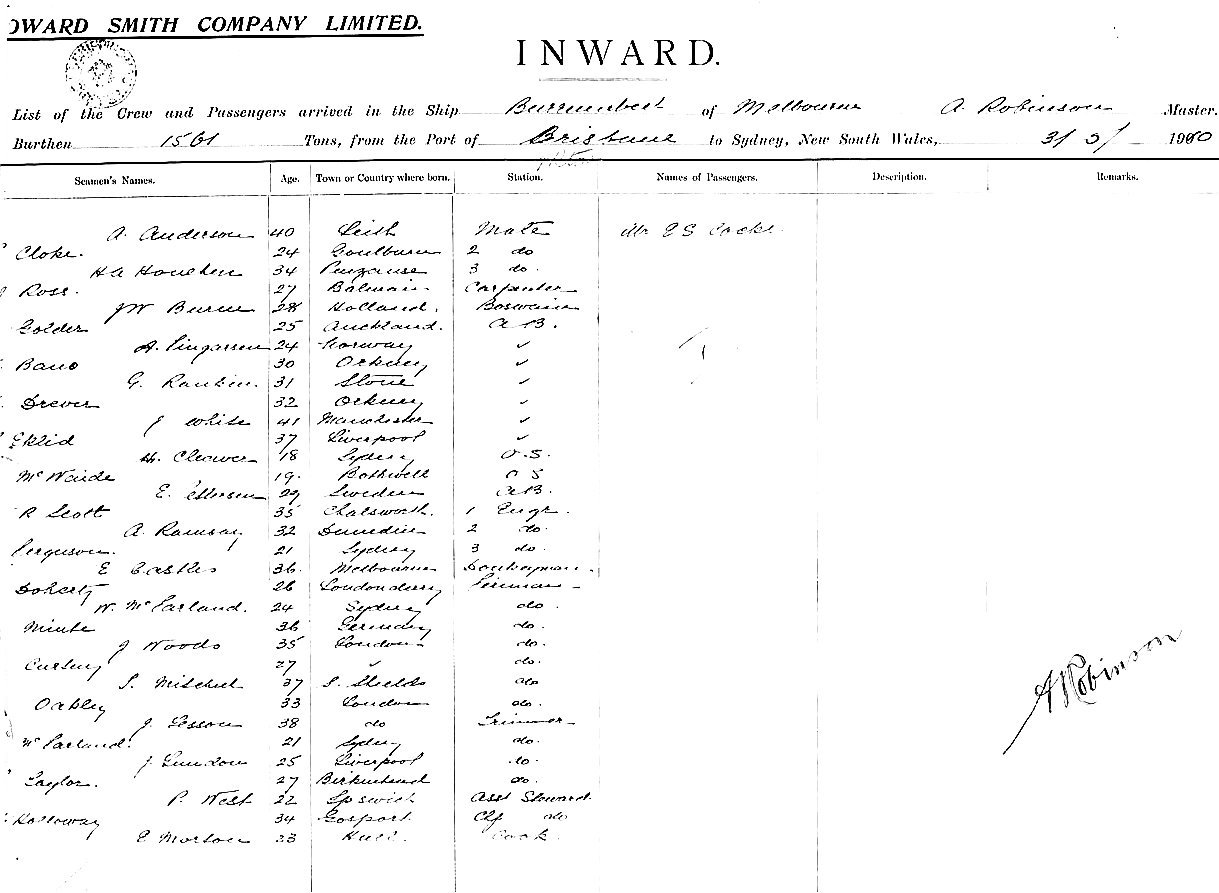 OWARD SMITH COMPANY LIMITED.
INWARD.
List of the Crew and Passengers arrived in the Ship Burrumbeet of Melbourne A. Robinson Master.
Burthen 1561 Tons, from the Port of Brisbane to Sydney, New South Wales, 31/5/ 1900
Seamen's Names. Age. Town or Country where born. Station. Names of Passengers. Description. Remarks.
A. Anderson 40 Leith Mate Mr
Cloke 24 Goulburn 2 do
H A 34 Penzanse 3 do.
Ross. 27 Balmain Carpenter
JW 28 Holland. Boswain
Golder 25 Auckland. A B.
A. 24 Norway ✓
30 Orkney ✓
G. Rankin. 31 ✓
Drever 32 Orkney ✓
J White 41 Manchester ✓
Eklid 37 Liverpool ✓
H. Cleaver 18 Sydney O.S.
19. Bothwell O S
E. 29 Sweden A.B.
R Scott 35 Chatsworth. 1 Engr.
A. Ramsay 32 Dunedin 2 do.
Ferguson. 21 Sydney 3 do.
E Castles 36. Melbourne Donkeyman
Doherty 26 Londonderry Fireman
W. McParland. 24 Sydney do.
36 Germany do.
J Woods 35 London do.
27 ✓ do.
S. Mitchel 37 S. Shields do
Oakley 33 London do.
J. 38 do Trimmer
McParland. 21 Sydney do.
J. 25 Liverpool do.
Taylor. 27 Birkenhead do.
P. West 22 Ipswich Asst Steward.
Holloway 34 Gosport do
E Morton 33 Hull. Cook.
A Robinson